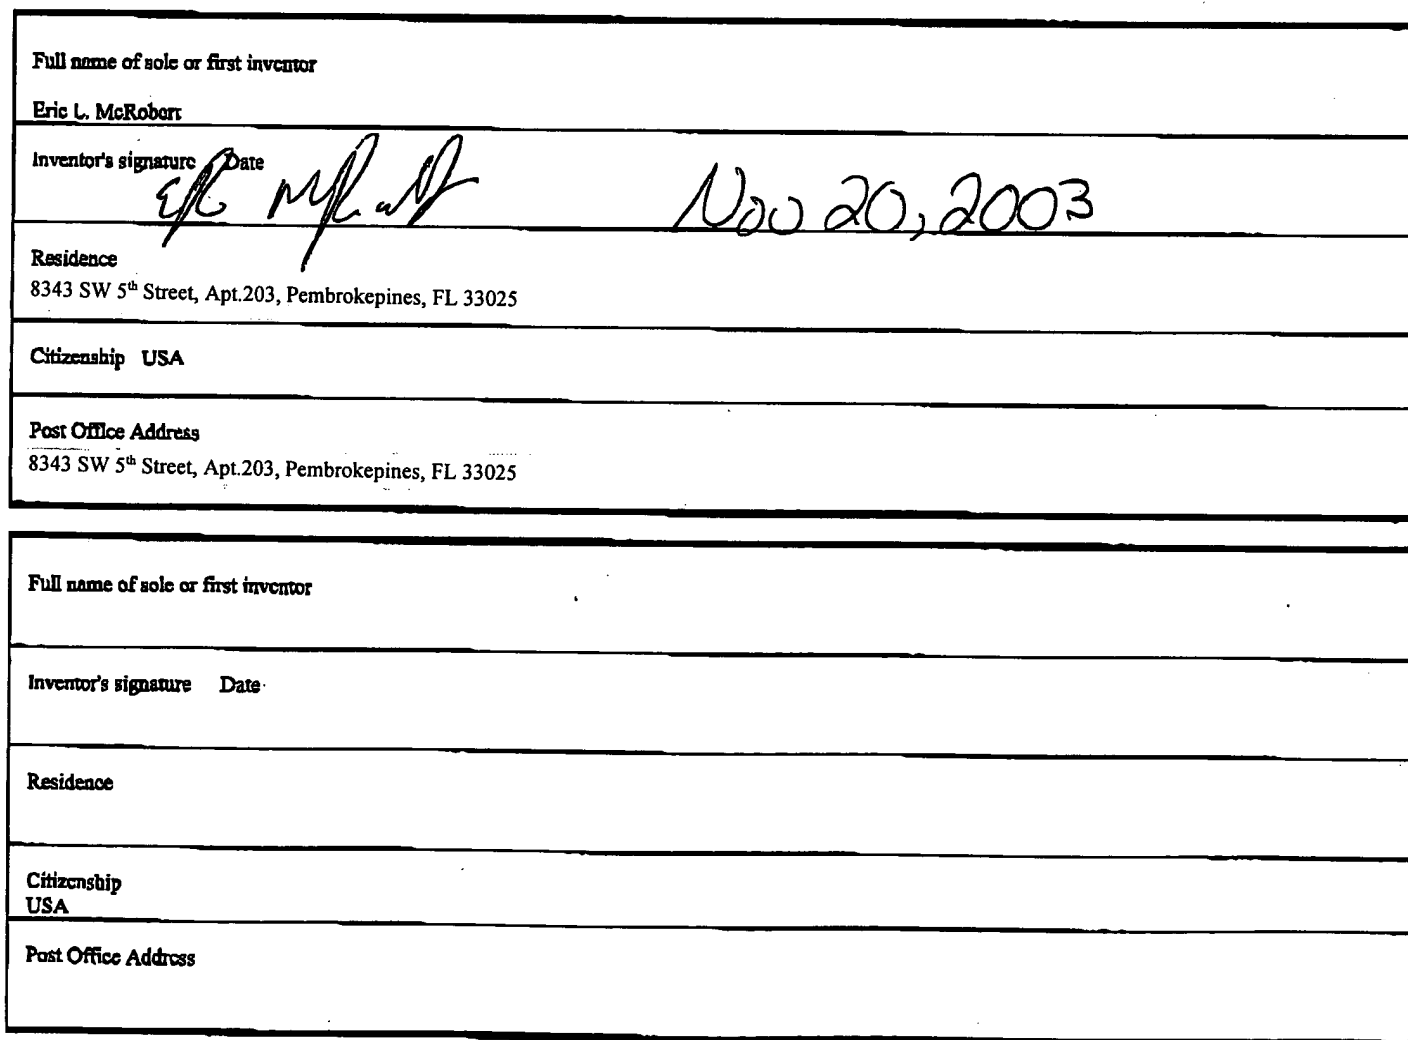 Full name of sole or first inventor
Eric L. McRobert
Inventor's signature Date
Nov 20, 2003
Residence
8343 SW 5th Street, Apt.203, Pembrokepines, FL 33025
Citizenship USA
Post Office Address
8343 SW 5th Street, Apt.203, Pembrokepines, FL 33025
Full name of sole or first inventor
Inventor's signature Date
Residence
Citizenship
USA
Post Office Address